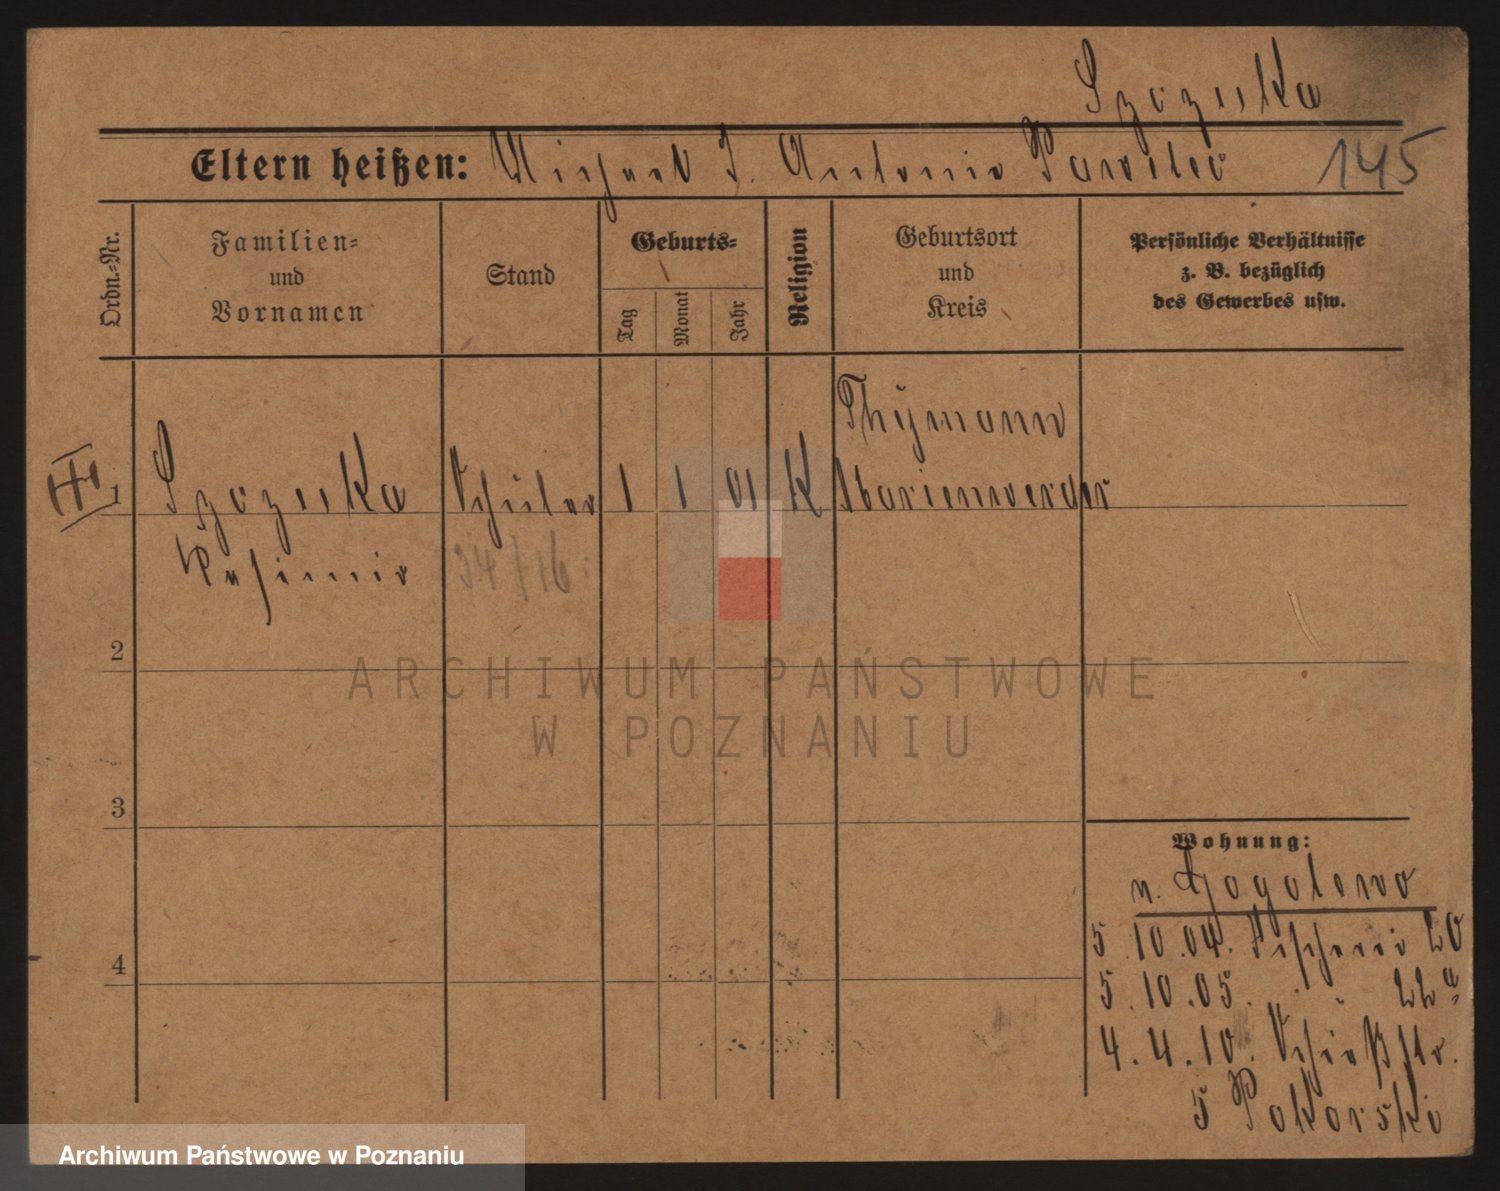 Szczuka
Eltern heißen: Michael J. Antonie Pawelec
145
Ordn.-Nr.
Familien-
und
Vornamen
Stand
Geburts-
Tag
Monat
Jahr
Religion
Geburtsort
und
Kreis
Persönliche Verhältnisse
z. B. bezüglich
des Gewerbes usw.
Thymann
1 Schüler 1 1 01 K Marienwerder
Kasimir 34/16
2
ARCHIWUM PAŃSTWOWE
W POZNANIU
3
Wohnung:
n. Gogolewo
5.10.04. Fischerei 20
4
5.10.05. 22a
4.4.10. Schießstr.
5 Pokorski
Archiwum Państwowe w Poznaniu